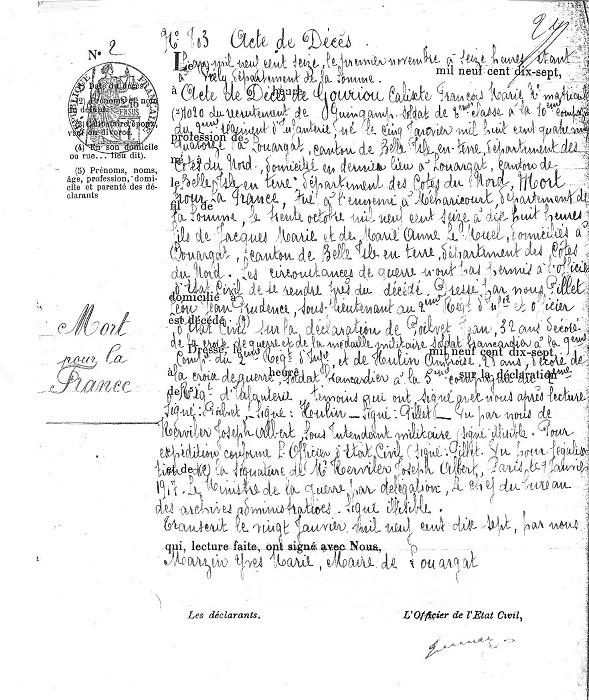 Nº 2
Nº 803 Acte de Décès
L'an mil neuf cent seize, le premier novembre à seize heures étant
mil neuf cent dix-sept,
à Vrély, département de la Somme.
à heure
Acte de Décès de Gouriou Calixte François Marie, Nº matricule
1020 du recrutement de Guingamp, soldat de 2ème classe à la 10ème compagnie
du 2ème Régiment d'Infanterie, né le cinq janvier mil huit cent quatre vingt
profession de
quatorze à Louargat, canton de Belle Isle en terre, département des
né à
Côtes du Nord, domicilié en dernier lieu à Louargat, canton de
le
Belle Isle en terre, département des Côtes du Nord, Mort
fil de
pour la France, tué à l'ennemi à Méharicourt, département de
la Somme, le trente octobre mil neuf cent seize à dix huit heures
fils de Jacques Marie et de Marie Anne Le Muel, domiciliés à
Louargat, canton de Belle Isle en terre, département des Côtes
du Nord. Les circonstances de guerre n'ont pas permis à l'officier
d'Etat Civil de se rendre près du décédé. Dressé par nous Gillet
domicilié à
Léon Jean Prudence, sous-lieutenant au 2ème Régt d'Infie et officier
est décédé, (2)
d'Etat Civil sur la déclaration de Poilvet Jean, 32 ans décoré
de la croix de guerre et de la médaille militaire soldat brancardier à la 9ème
Dressé, le mil neuf cent dix-sept,
Comp. du 2ème Régt d'Infie et de Houlin Ambroise, ans, décoré de
heure sur la déclaration
la croix de guerre, soldat brancardier à la 5ème comp. du 2ème
de (5)
Rég. d'Infanterie, témoins qui ont signé avec nous après lecture
Signé: Poilvet _ Signé: Houlin _ Signé: Gillet _ Vu par nous de
Kerviler Joseph Albert, Sous Intendant militaire (signé illisible. Pour
expédition conforme L'Officier d'Etat Civil (signé: Gillet. Vu pour légalisa
tion de la signature de Mr Kerviler Joseph Albert, Paris, le 9 janvier
1917. Le Ministre de la guerre par délégation, Le chef du bureau
des archives administratives. Signé illisible.
Transcrit le vingt janvier mil neuf cent dix sept, par nous
qui, lecture faite, ont signé avec Nous,
Marzin Yves Marie, Maire de Louargat
Les déclarants.
L'Officier de l'Etat Civil,
Mort
pour la
France
RÉPUBLIQUE FRANÇAISE
(1) Date du décès.
(2) Prénoms et nom
du décédé.
(3) Célibataire, époux,
veuf ou divorcé.
(4) En son domicile
ou rue... lieu dit).
(5) Prénoms, noms,
âge, profession, domi-
cile et parenté des dé-
clarants